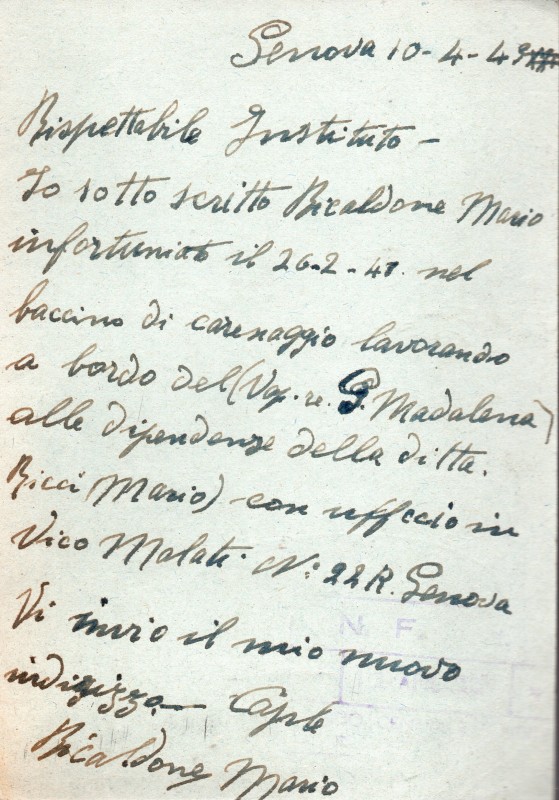 Genova 10-4-49
Rispettabile Instituto -
Io sotto scritto Bicaldone Mario
infortunato il 26-2-41. nel
baccino di carenaggio lavorando
a bordo del (Vap.re. S. Madalena)
alle dipendenze della ditta.
Ricci Mario) con uffccio in
Vico Malati N: 22 R. Genova
Vi invio il mio nuovo
indirizzo
Bicaldone Mario
N F